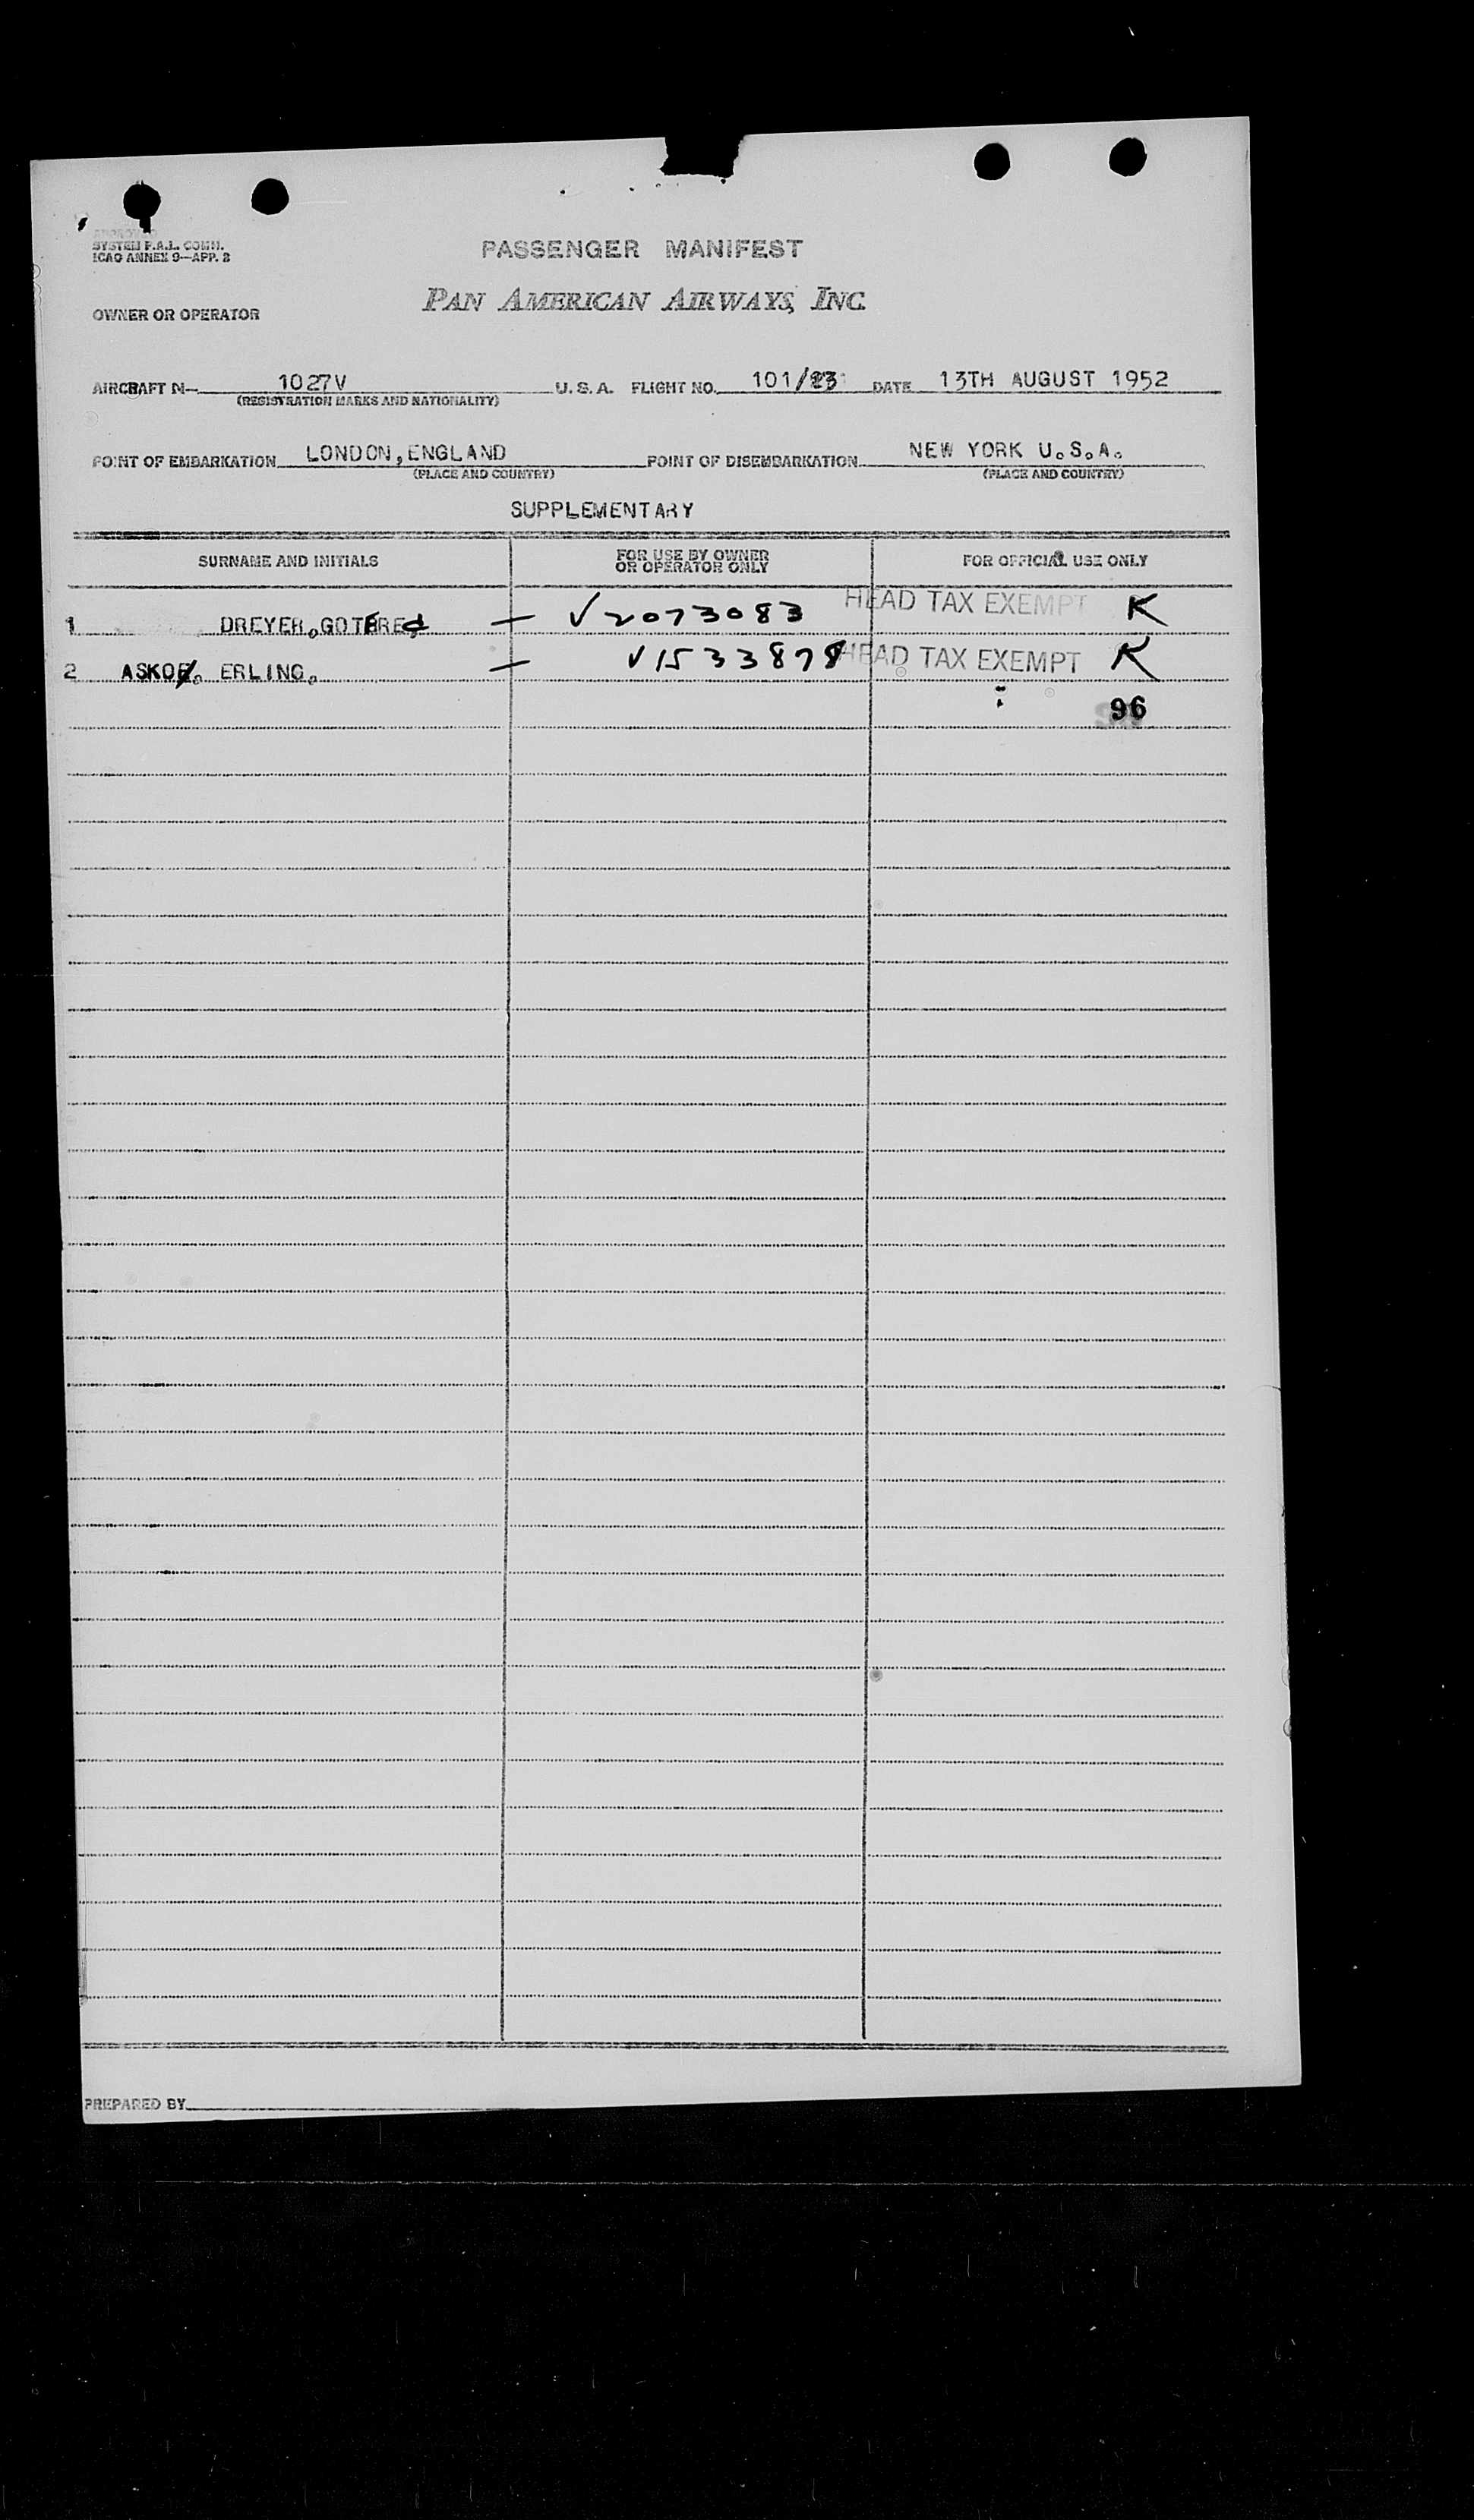 APPROVED
SYSTEM F.A.L. COMM.
ICAO ANNEX 9—APP. 2
PASSENGER MANIFEST
PAN AMERICAN AIRWAYS, INC.
OWNER OR OPERATOR
AIRCRAFT N— 1027V U.S.A. FLIGHT NO. 101/ DATE 13TH AUGUST 1952
(REGISTRATION MARKS AND NATIONALITY)
POINT OF EMBARKATION LONDON, ENGLAND POINT OF DISEMBARKATION NEW YORK U.S.A.
(PLACE AND COUNTRY) (PLACE AND COUNTRY)
SUPPLEMENTARY
SURNAME AND INITIALS FOR USE BY OWNER OR OPERATOR ONLY FOR OFFICIAL USE ONLY
1 DREYER. GOTFRED — √2073083 HEAD TAX EXEMPT K
2 ERLING. — √1533878 HEAD TAX EXEMPT K
96
PREPARED BY